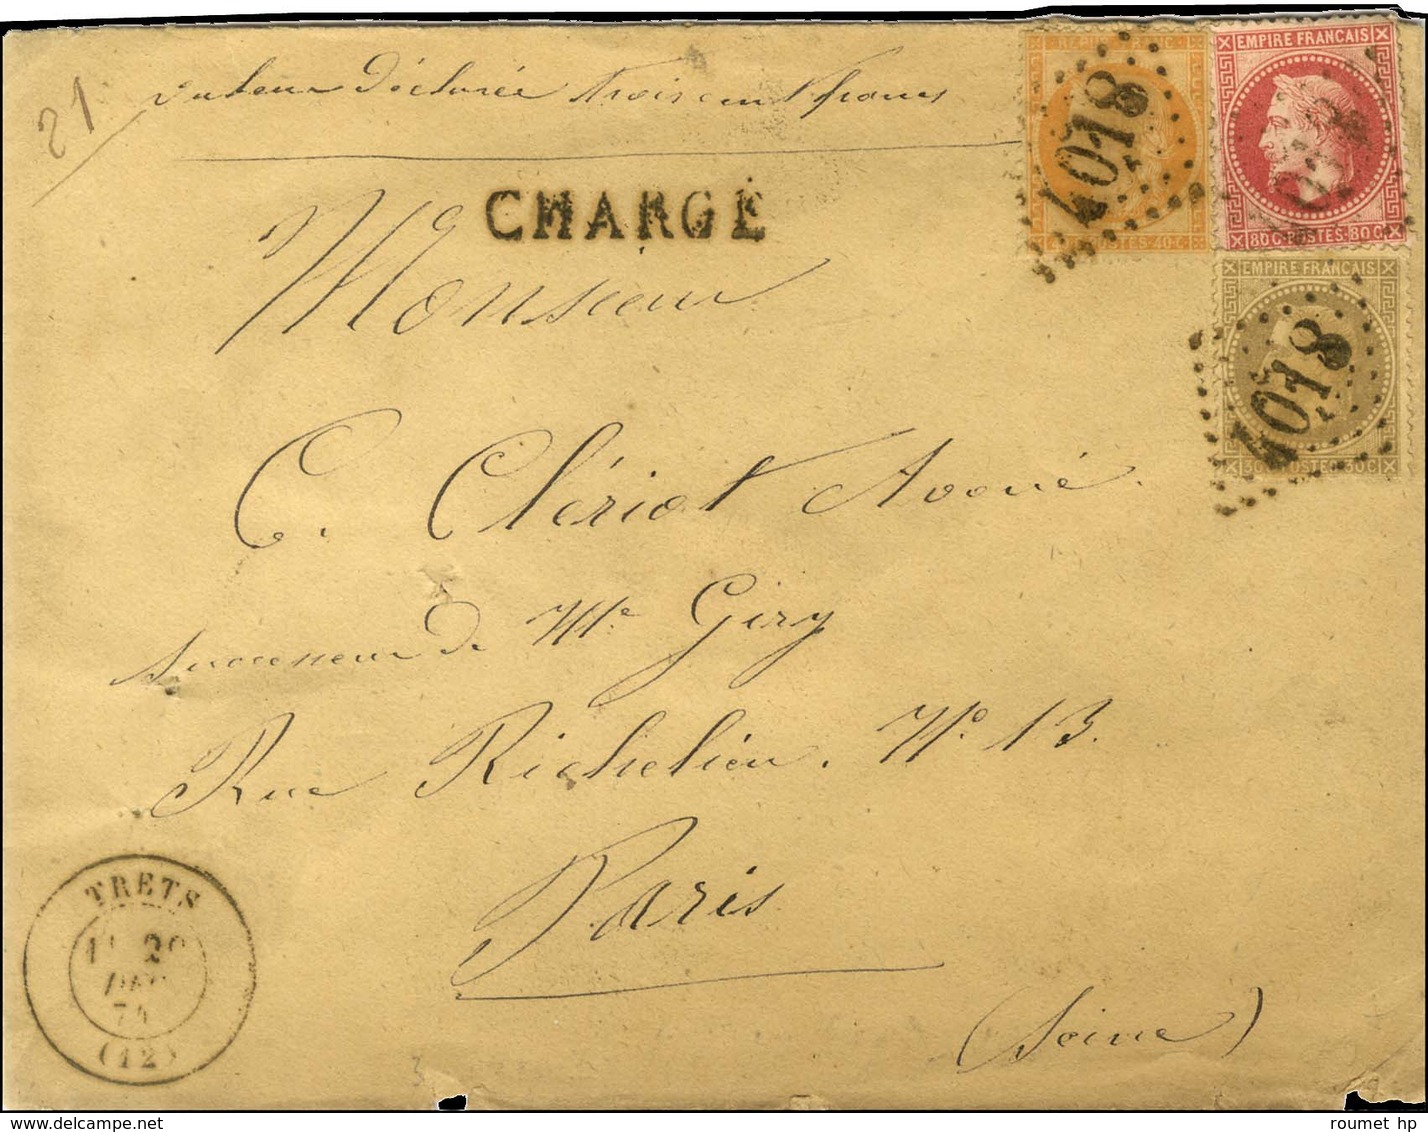 21
valeur déclarée trois cent francs
REPUB FRANC
40 C POSTES 40 C
4018
EMPIRE FRANÇAIS
80 C POSTES 80 C
CHARGÉ
Monsieur
EMPIRE FRANÇAIS
30 C POSTES 30 C
4018
C. Clériot Avoué
successeur de Me Giry
Rue Richelieu. No 13.
Paris
(Seine)
TRETS
(12)
roumet hp